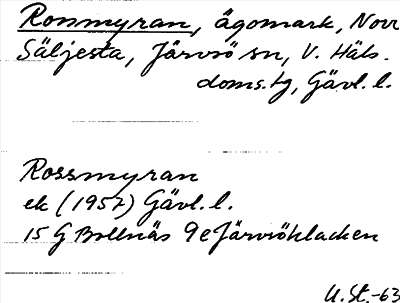 Rossmyran, ägomark, Norr
Säljesta, Järvsö sn, V. Häls.
doms.tg, Gävl. l.
Rossmyran
ek (1957) Gävl. l.
15 G Bollnäs 9e Järvsöklacken
U.St.-63